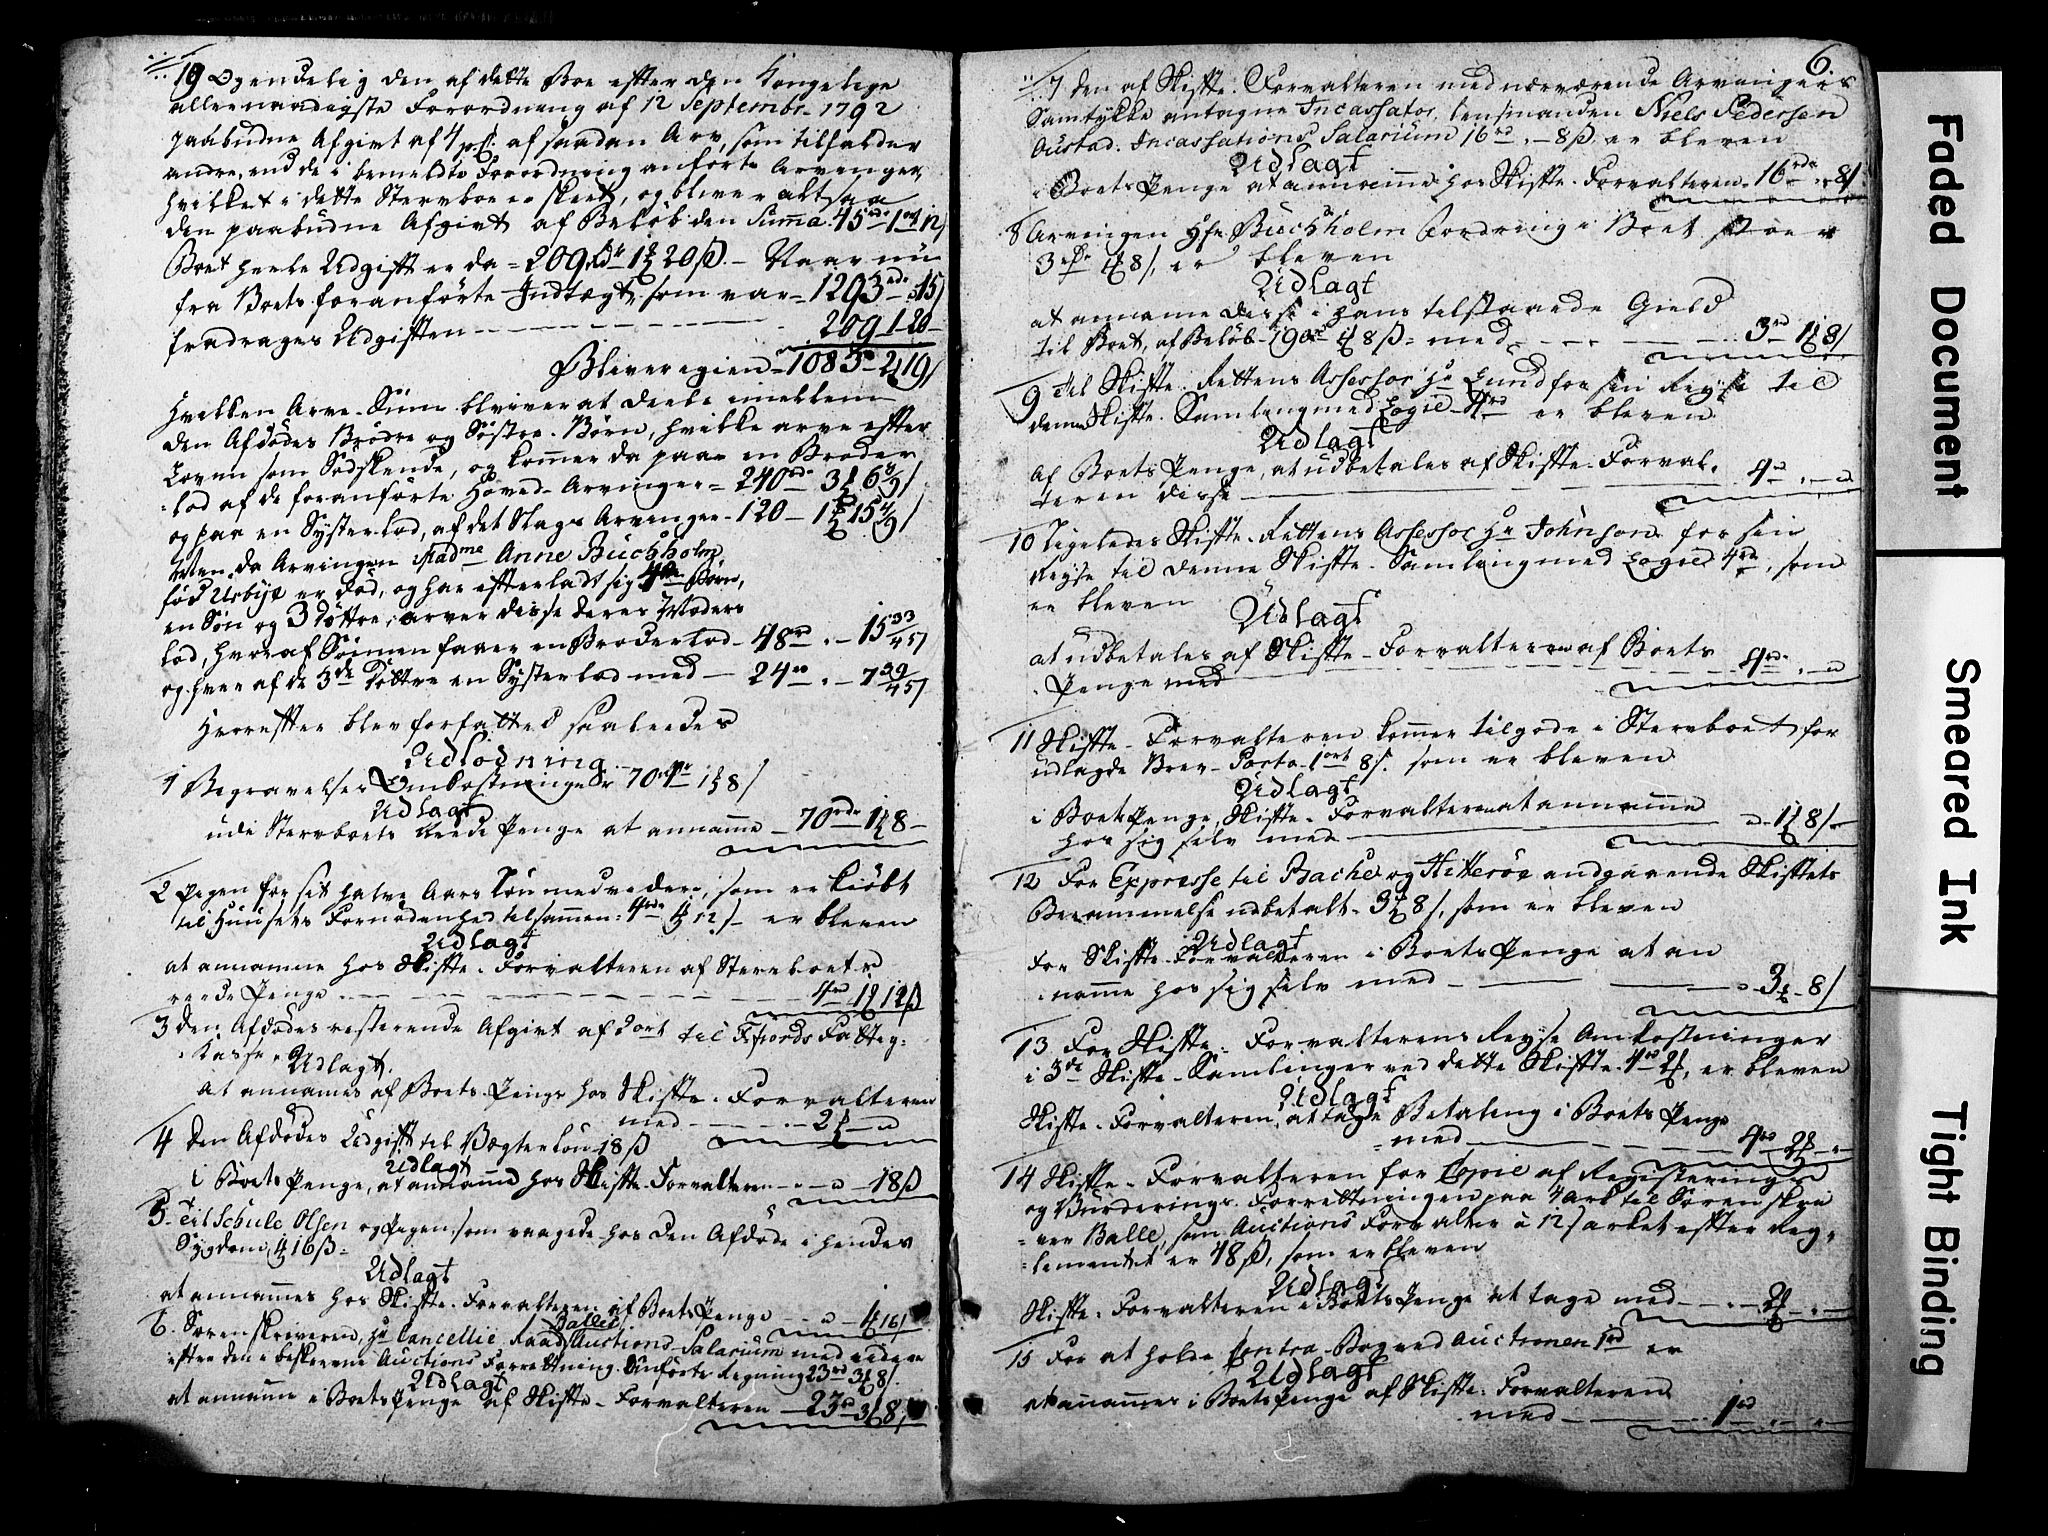 19 Ogendelig den af dette Boe efter den Kongelige
allernaadigste Forordning af 12 Septembr. 1792
paabudne Afgivt af 4 pCt. af saadan Arv, som tilfalder
andre, end de i bemeldte Forordning anførte Arvenger,
hvilket i dette Stervboe er skeet, og bliver altsaa
den paabudne Afgivt af Beløb den Summa 45rd 1ort 12ß
Boet heele Udgift er da = 209rdr 1ort 20ß. - Naar nu
fra Boets foranførte Indtægt, som var = 1293rd " 15ß
fradrages Udgiften - 209 1 20 -
Bliver igien = 1083 - 2 19ß
Hvilken Arve-Sum bliver at deele imellem
den Afdødes Brødre og Søstre-Børn, hvilke arve efter
Loven som Sødskende, og kommer da paa en Broder
-lod af de foranførte Hoved-Arvinger = 240rd 3 6
og paa en Systerlod, af det Slags Arvenger - 120 - 1 15
Men da Arvingen Madme Anne Buchholm
fød Urbye er død, og har efterladt sig 4re Børn,
en Søn og 3 døttre, arver disse deres Moders
lod, hvoraf Sønnen faaer en Broderlod - 48rd " - 15 33/45ß
og hver af de 3de Døttre en Systerlod med - 24rd " - 7 39/45ß
Hvorefter blev forfatted saaledes
Udlodning
1 Begravelses Omkostninger 70rdr 1 8ß
Udlagt
udi Stervboets reede Penge at annamme - 70rdr 1 8 -
2 Pigen for sit halve Aars Løn med vedere, som er kiøbt
til Huusets Fornødenhed tilsammen: 4rdr 1 12ß - er bleven
Udlagt
at annamme hos Skifte-Forvalteren af Stervboets
reede Penge - 4rd 1 12ß
3 den Afdødes resterende Afgivt af 2ort til Fjords Fattig-
Kasse. Udlagt.
at annammes af Boets Penge hos Skifte-Forvalteren
med - 2 - "
4 den Afdødes Udgift til Vægterløn 18ß
Udlagt
i Boets Penge, at annamme hos Skifte-Forvalteren - " - 18ß
5 Til Schule Olsen og Pigen som vaagede hos den Afdøde i hendes
Sygdom, 4 16ß =
Udlagt
at annammes hos Skifte-Forvalteren af Boets Penge - " - 4 16ß
6. Sorenskriveren, Hr Cancellie Raad Balles Auctions-Salarium med videre
efter den i beskrevne Auctions Forretning Anførte Regning 23rd 3 8ß.
Udlagt
at annamme i Boets Penge af Skifte-Forvalteren - 23rd 3 8ß
6.
7 den af Skifte-Forvalteren med nærværende Arvingers
Samtykke antagne Incassator, lensmanden Niels Pedersen
Austad. Incassations Salarium 16rd " - 8ß er bleven
Udlagt
i Boets Penge at annamme hos Skifte-Forvalteren - 16rdr " 8ß
8 Arvingen Hr Buchholm Fordring i Boet
3rdr 1 8ß, er bleven
Udlagt
at annamme disse i hans tilstaaede Gield
til Boet, af Beløb 190rd 1 8ß = med - 3rd 1 8ß
9 Til Skifte-Rettens Assessor Hr Lund for sin Reyse til
denne Skifte-Samling med Logie 4rd er bleven
Udlagt
Af Boets Penge, at udbetales af Skifte-Forval-
teren disse - 4rd " - "
10 Ligeledes Skifte-Rettens Assessor Hr Johnson for sin
Reyse til denne Skifte-Samling med Logie 4rd, som
er bleven
Udlagt
at udbetales af Skifte-Forvalteren af Boets
Penge med - 4rd " - "
11 Skifte-Forvalteren kommer tilgode i Stervboet for
udlagde Brev-Porto 1ort 8ß. som er bleven
Udlagt
i Boets Penge, Skifte-Forvalteren at annamme
hos sig selv med - " - 1 8ß -
12 For Expresse til Bache og Hitterøe angaaende Skiftets
Berammelse udbetalt - 3 8ß, som er bleven
Udlagt
For Skifte-Forvalteren i Boets Penge at an
-namme hos sig selv med - " 3 - 8ß
13 For Skifte-Forvalterens Reyse Omkostninger
i 3de Skifte-Samlinger ved dette Skifte 4rd 2, er bleven
Udlagt
Skifte-Forvalteren, at tage Betaling i Boets Penge
med - 4rd 2 " -
14 Skifte-Forvalteren for Copie af Registerings
og Vurderings-Forretningen paa 4 ark til Sorenskri
-ver Balle, som Auctions Forvalter a 12ß arket efter Reg-
lementet er 48ß, som er bleven
Udlagt
Skifte-Forvalteren i Boets Penge at tage med - " - 2 - " -
15 For at holde Contra-Bog ved Auctionen 1rd er
Udlagt
at annammes i Boets Penge af Skifte-Forvalteren
med - 1rd " - " -
Faded Document
Smeared Ink
Tight Binding